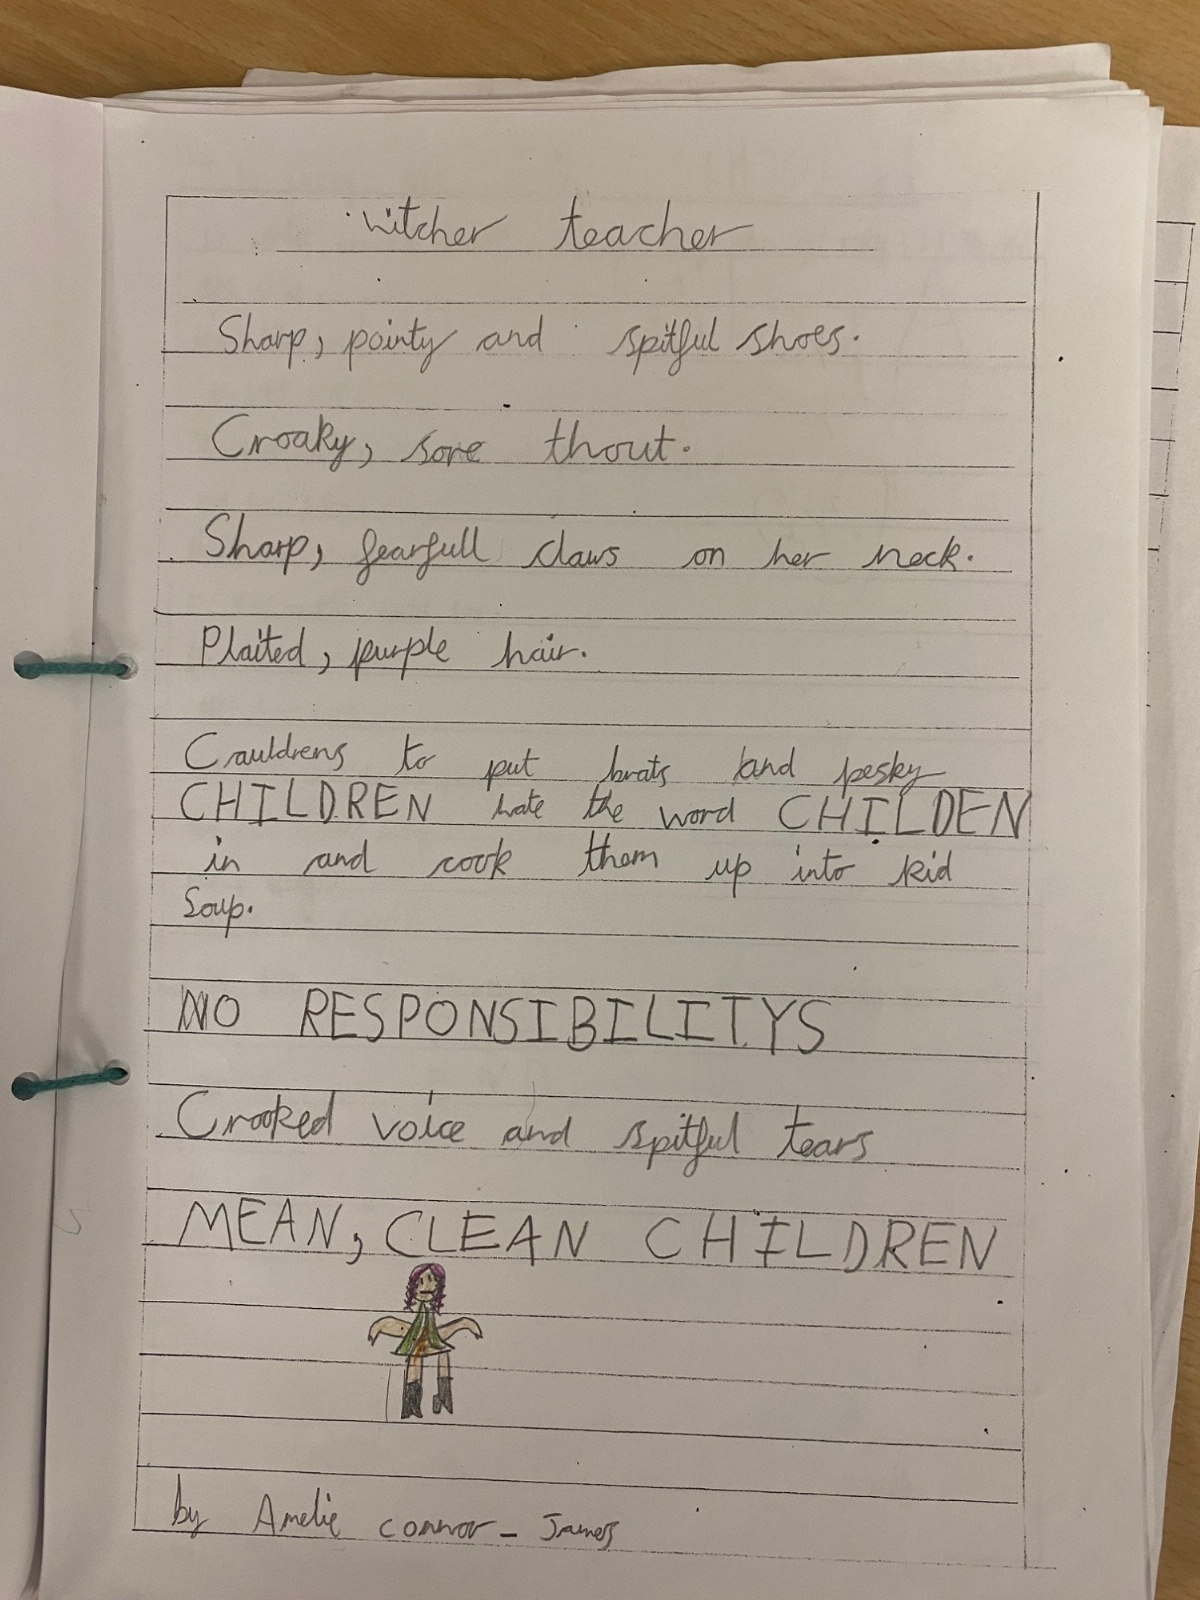 witcher teacher
Sharp, pointy and spitful shoes.
Croaky, sore thout.
Sharp, fearfull claws on her neck.
Plaited, purple hair.
Cauldrens to put brats and pesky
CHILDREN hate the word CHILDEN
in and cook them up into kid
Soup.
NO RESPONSIBILITYS
Crooked voice and spitful tears
MEAN, CLEAN CHILDREN
by Amelie connor - James